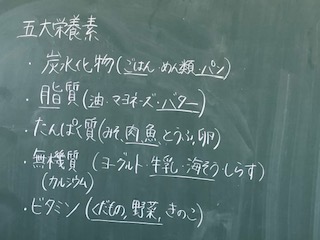 五大栄養素
・炭水化物(ごはん・めん類・パン)
・脂質(油・マヨネーズ・バター)
・たんぱく質(みそ,肉,魚,とうふ,卵)
・無機質(ヨーグルト・牛乳・海そう・しらす)
(カルシウム)
・ビタミン(くだもの,野菜,きのこ)